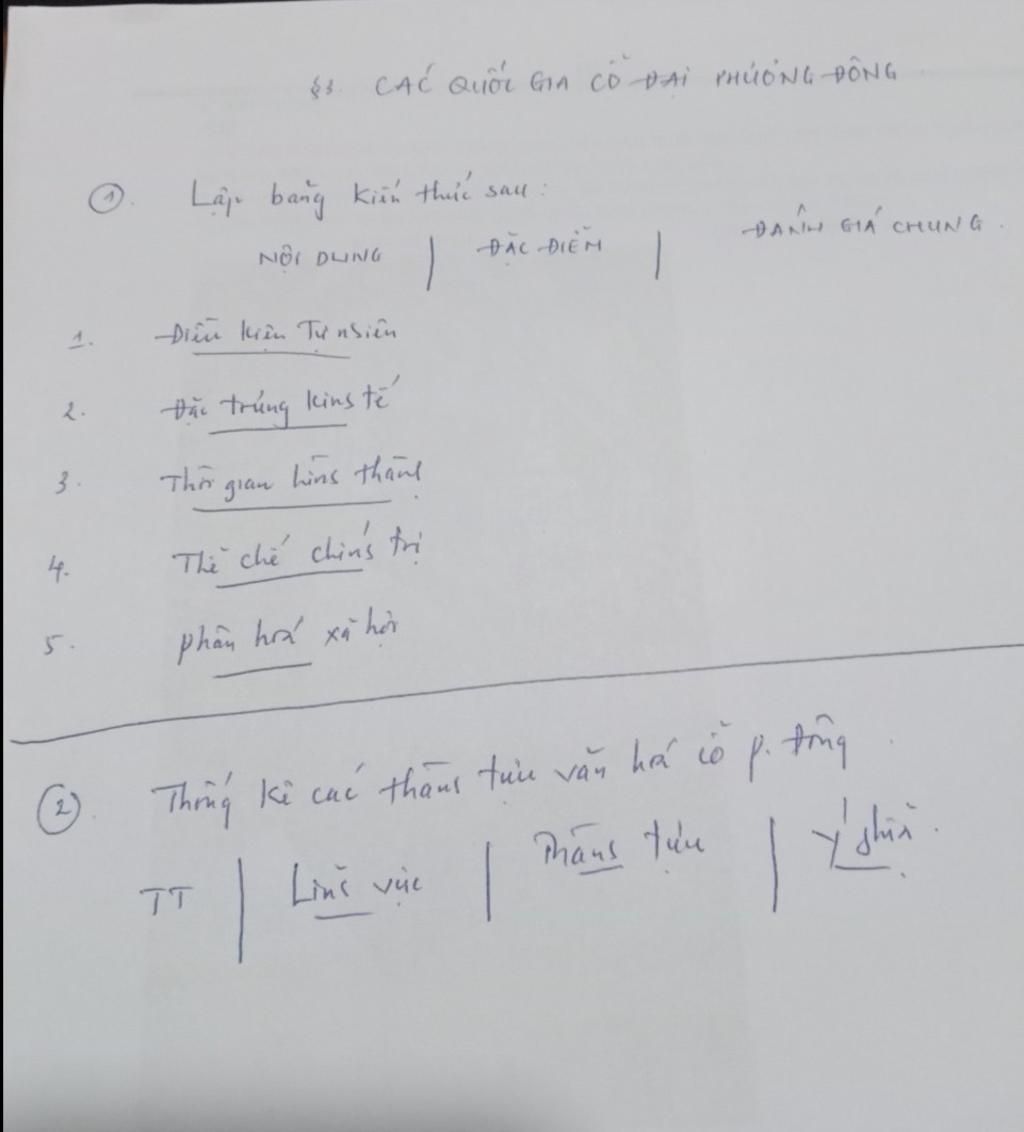 §3. CÁC QUỐC GIA CỔ ĐẠI PHƯƠNG ĐÔNG
①. Lập bảng kiến thức sau:
NỘI DUNG | ĐẶC ĐIỂM | ĐÁNH GIÁ CHUNG.
1. Điều kiện Tự nhiên
2. Đặc trưng kinh tế
3. Thời gian hình thành
4. Thể chế chính trị
5. phân hoá xã hội
②. Thống kê các thành tựu văn hoá cổ p. Đông.
TT | Lĩnh vực | Thành tựu | Ý nghĩa.